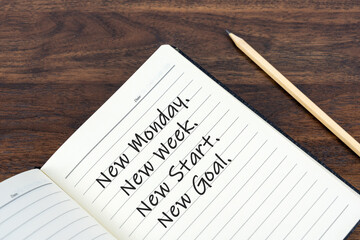 Date
New Monday.
New Week.
New Start.
New Goal.